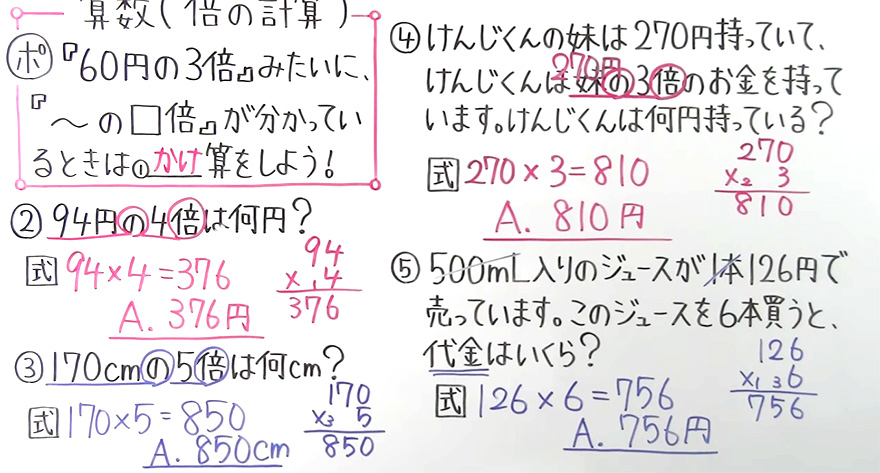 算数(倍の計算)
ポ『60円の3倍』みたいに、
『〜の□倍』が分かってい
るときは①かけ算をしよう!
②94円の4倍は何円?
式 94×4=376
A. 376円
94
×1 4
376
③170cmの5倍は何cm?
式 170×5=850
A. 850cm
170
×3 5
850
④けんじくんの妹は270円持っていて、
270円
けんじくんは妹の3倍のお金を持って
います。けんじくんは何円持っている?
式 270×3=810
A. 810円
270
×2 3
810
⑤500mL入りのジュースが1本126円で
売っています。このジュースを6本買うと、
代金はいくら?
式 126×6=756
A. 756円
126
×13 6
756